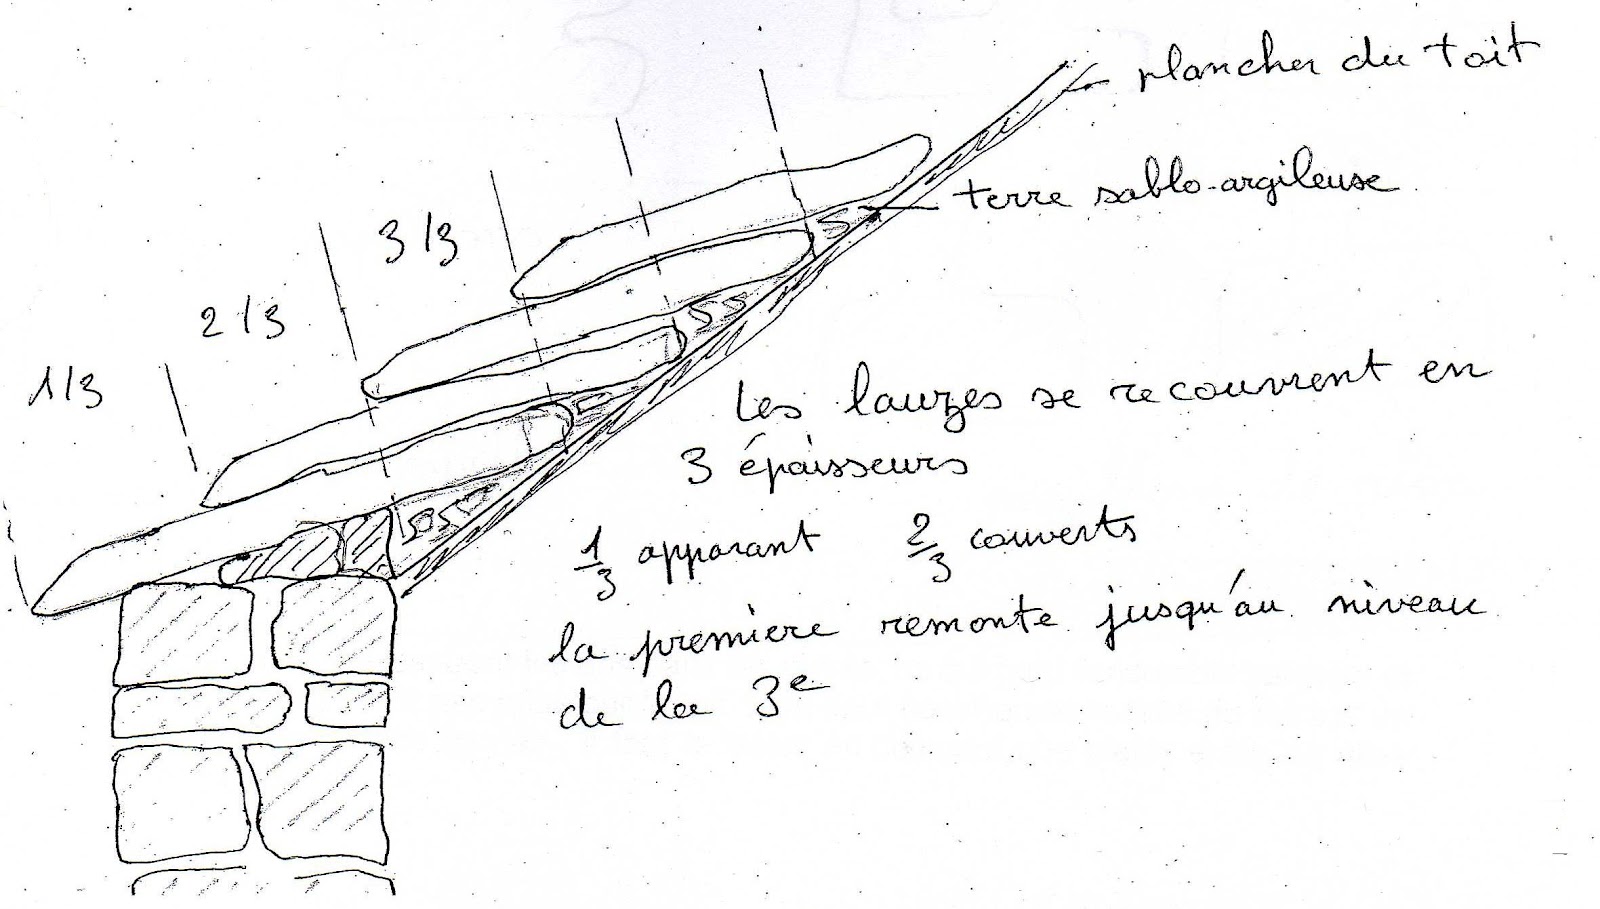 plancher du toit
terre sablo-argileuse
3/3
2/3
1/3
Les lauzes se recouvrent en
3 épaisseurs
1/3 apparant 2/3 couverts
la première remonte jusqu'au niveau
de la 3e